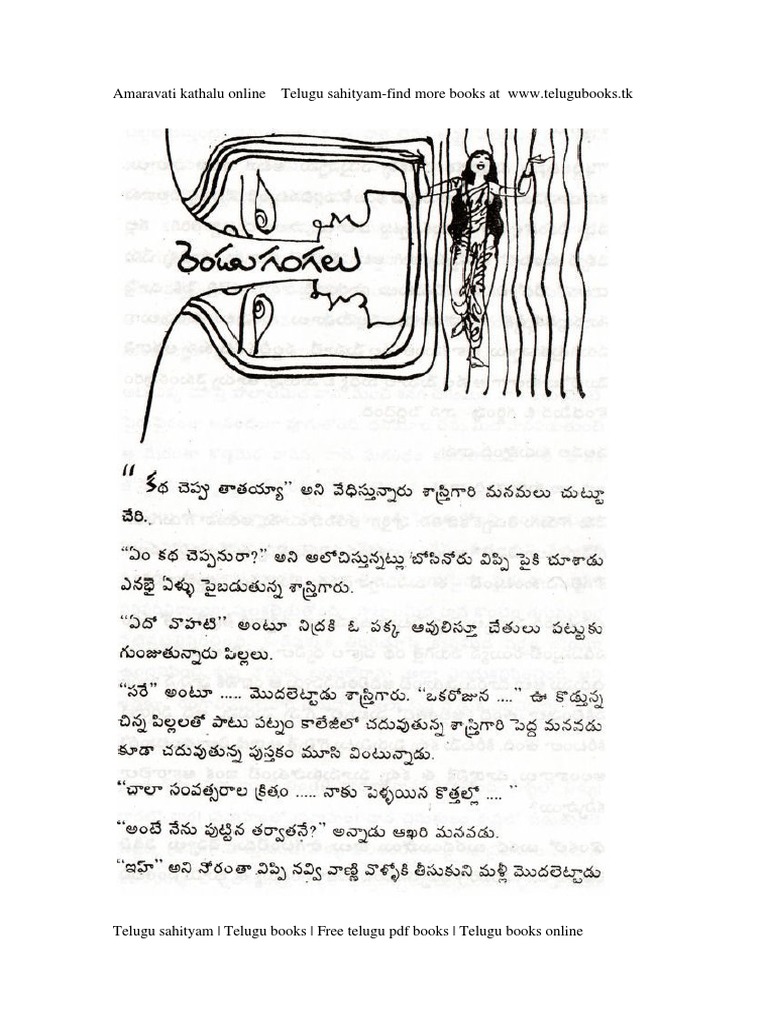 Amaravati kathalu online    Telugu sahityam-find more books at  www.telugubooks.tk
రెండు గంగలు
"కథ చెప్పు తాతయ్యా" అని వేధిస్తున్నారు శాస్త్రిగారి మనమలు చుట్టూ
చేరి.
"ఏం కథ చెప్పనురా?" అని ఆలోచిస్తున్నట్లు బోసినోరు విప్పి పైకి చూశాడు
ఎనభై ఏళ్ళు పైబడుతున్న శాస్త్రిగారు.
"ఏదో వొహటి" అంటూ నిద్రకి ఓ పక్క ఆవులిస్తూ చేతులు పట్టుకు
గుంజుతున్నారు పిల్లలు.
"సరే" అంటూ ..... మొదలెట్టాడు శాస్త్రిగారు. "ఒకరోజున ...." ఊ కొడ్తున్న
చిన్న పిల్లలతో పాటు పట్నం కాలేజీలో చదువుతున్న శాస్త్రిగారి పెద్ద మనవడు
కూడా చదువుతున్న పుస్తకం మూసి వింటున్నాడు.
"చాలా సంవత్సరాల క్రితం ..... నాకు పెళ్ళయిన కొత్తల్లో .... "
"అంటే నేను పుట్టిన తర్వాతనే?" అన్నాడు ఆఖరి మనవడు.
"ఇహ్" అని నోరంతా విప్పి నవ్వి వాణ్ణి వొళ్ళోకి తీసుకుని మళ్లీ మొదలెట్టాడు
Telugu sahityam | Telugu books | Free telugu pdf books | Telugu books online